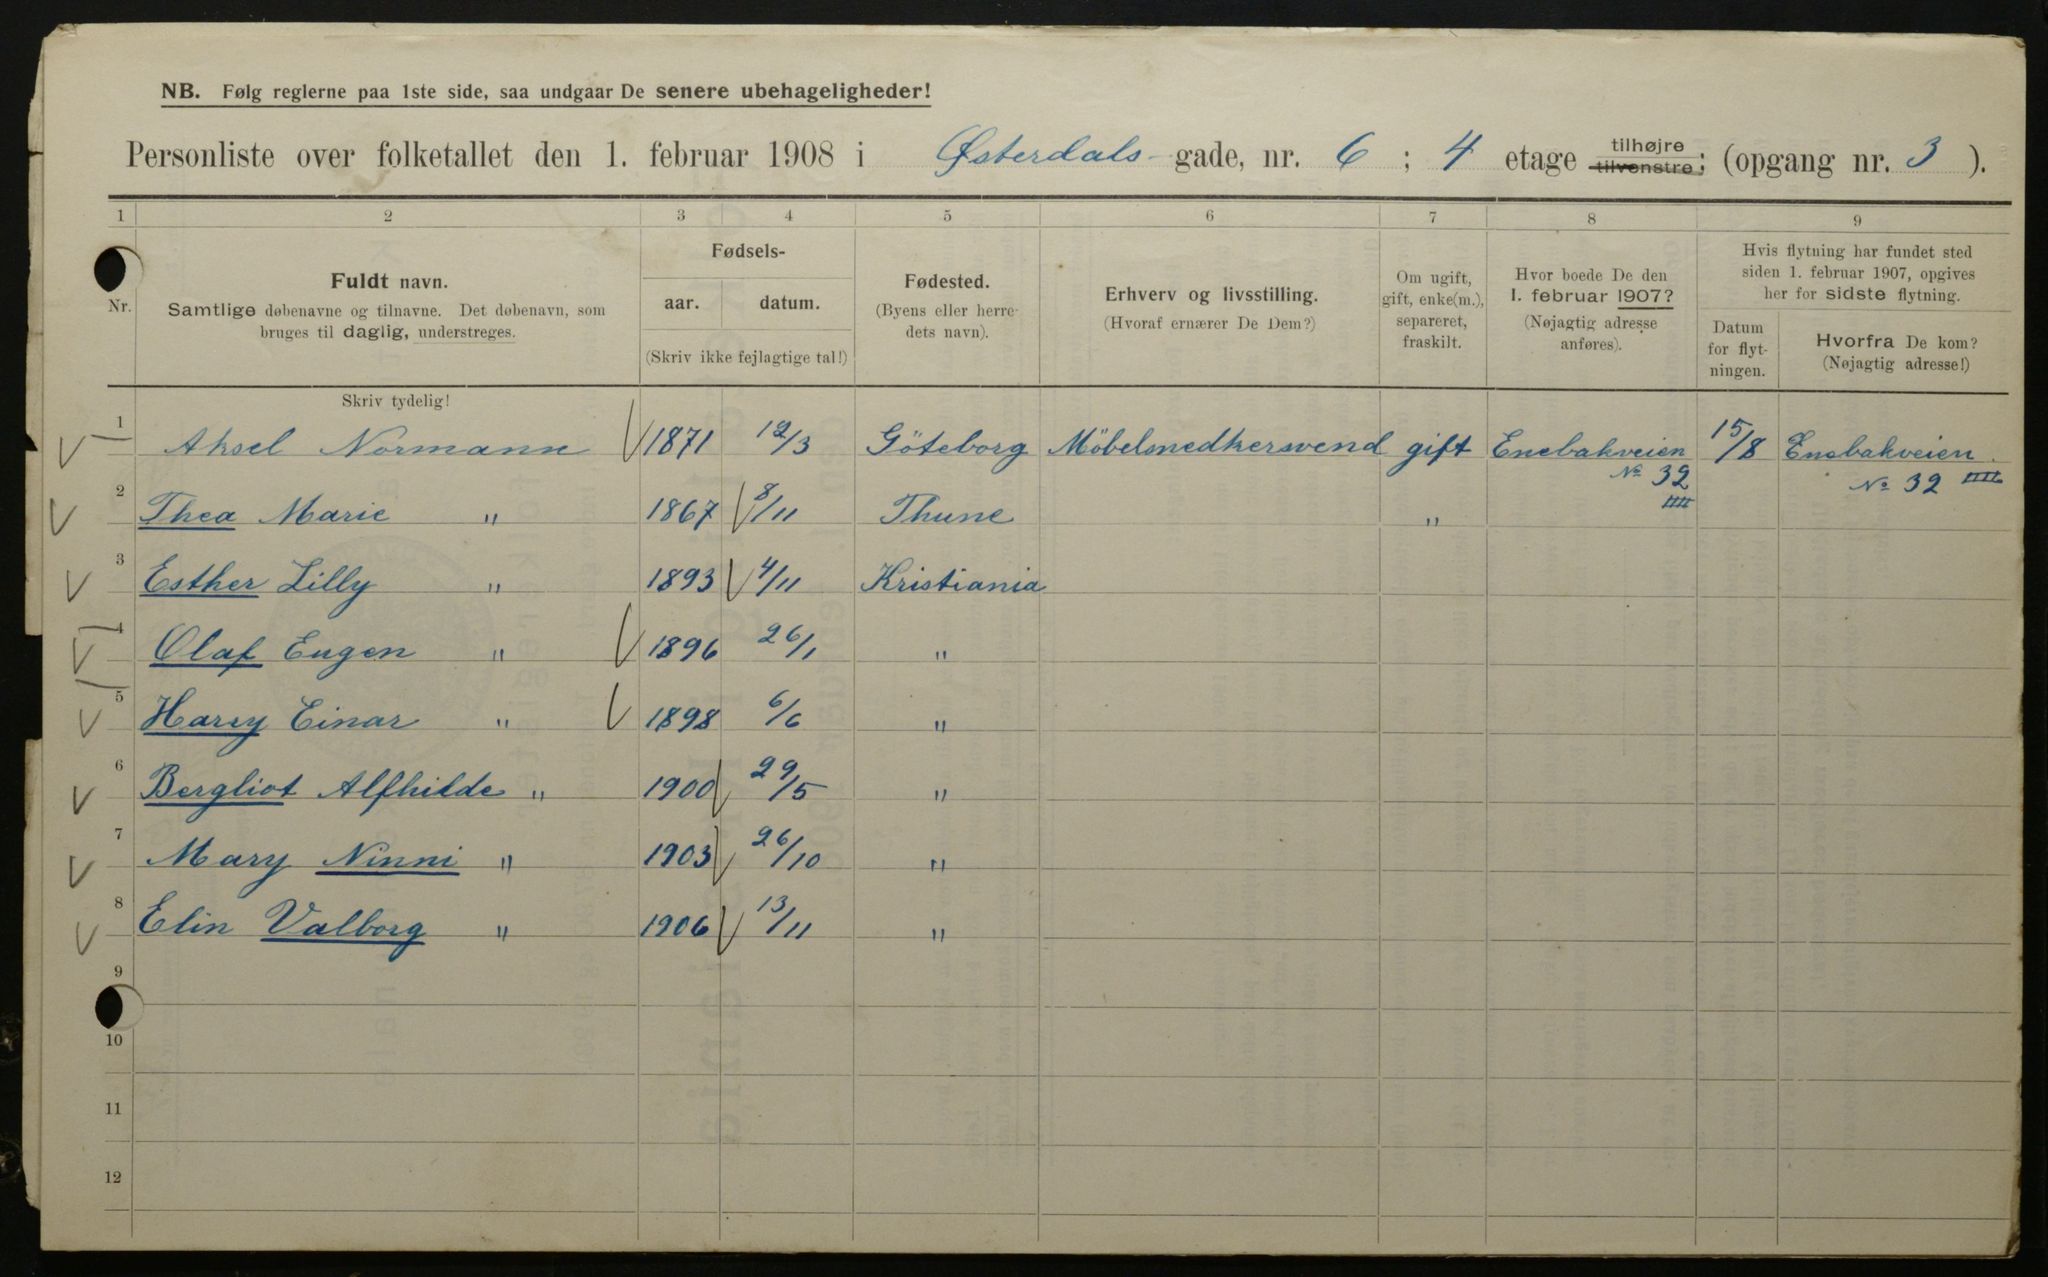 NB. Følg reglerne paa 1ste side, saa undgaar De senere ubehageligheder!
Personliste over folketallet den 1. februar 1908 i Østerdals- gade, nr. 6 ; 4 etage tilhøjre tilvenstre; (opgang nr. 3 ).
1 2 3 4 5 6 7 8 9
Nr.
Fuldt navn.
Samtlige døbenavne og tilnavne. Det døbenavn, som
bruges til daglig, understreges.
Fødsels-
aar. datum.
(Skriv ikke fejlagtige tal!)
Fødested.
(Byens eller herre-
dets navn).
Erhverv og livsstilling.
(Hvoraf ernærer De Dem?)
Om ugift,
gift, enke(m.),
separeret,
fraskilt.
Hvor boede De den
1. februar 1907?
(Nøjagtig adresse
anføres).
Hvis flytning har fundet sted
siden 1. februar 1907, opgives
her for sidste flytning.
Datum
for flyt-
ningen.
Hvorfra De kom?
(Nøjagtig adresse!)
Skriv tydelig!
1 Aksel Normann 1871 12/3 Göteborg Möbelsnedkersvend gift Enebakveien 15/8 Enebakveien.
No 32 No 32 IIII
IIII
2 Thea Marie " 1867 8/11 Thune "
3 Esther Lilly " 1893 4/11 Kristiania
4 Olaf Eugen " 1896 26/1 "
5 Harry Einar " 1898 6/6 "
6 Bergliot Alfhilde " 1900 29/5 "
7 Mary Ninni " 1903 26/10 "
8 Elin Valborg " 1906 13/11 "
9
10
11
12